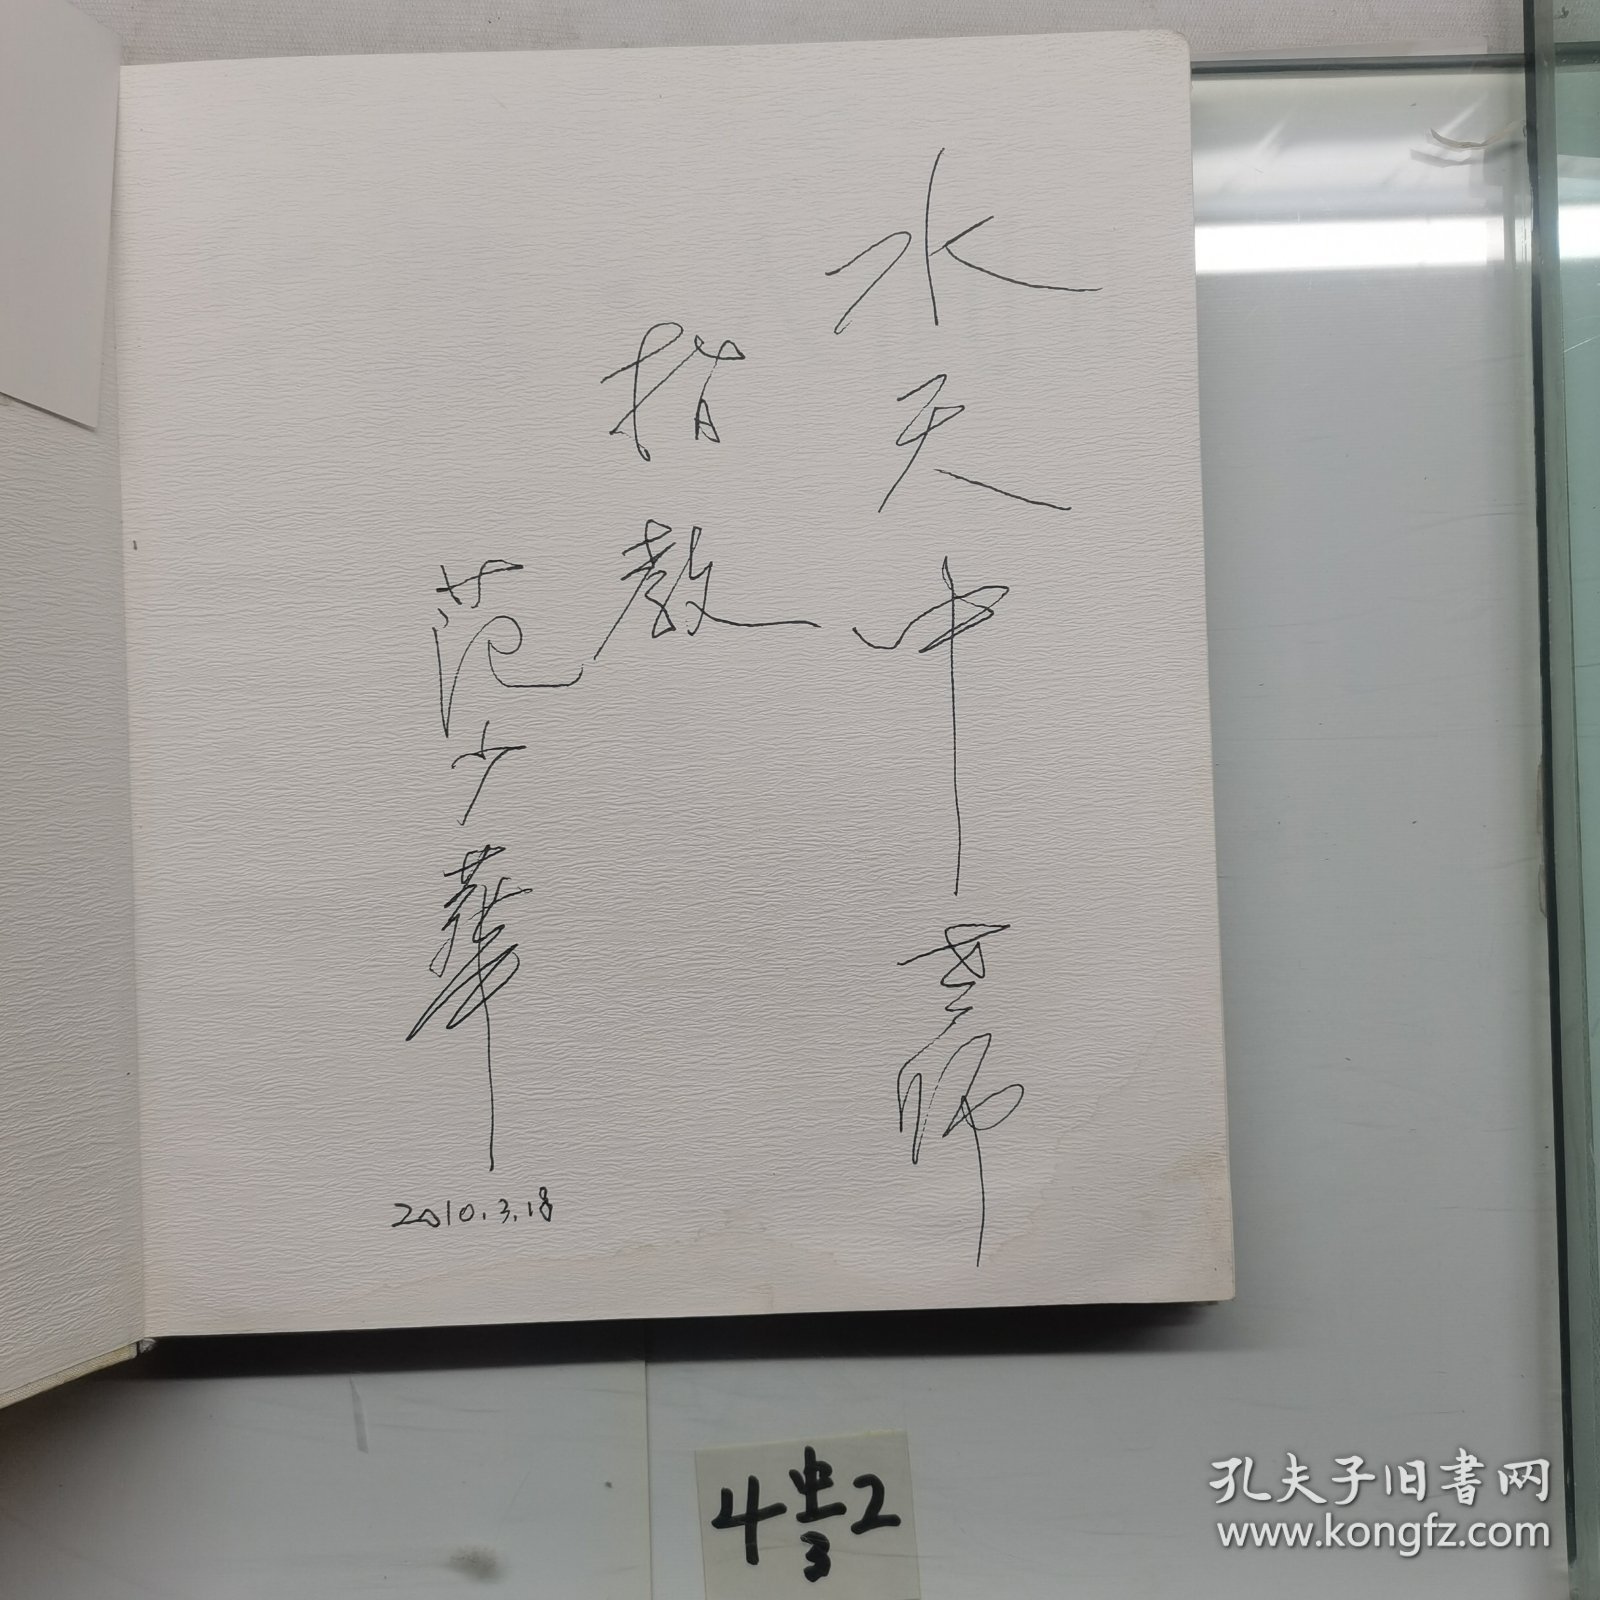 水天中老师
指教
范少華
2010.3.18
4 中上 2
3
孔夫子旧書网
www.kongfz.com